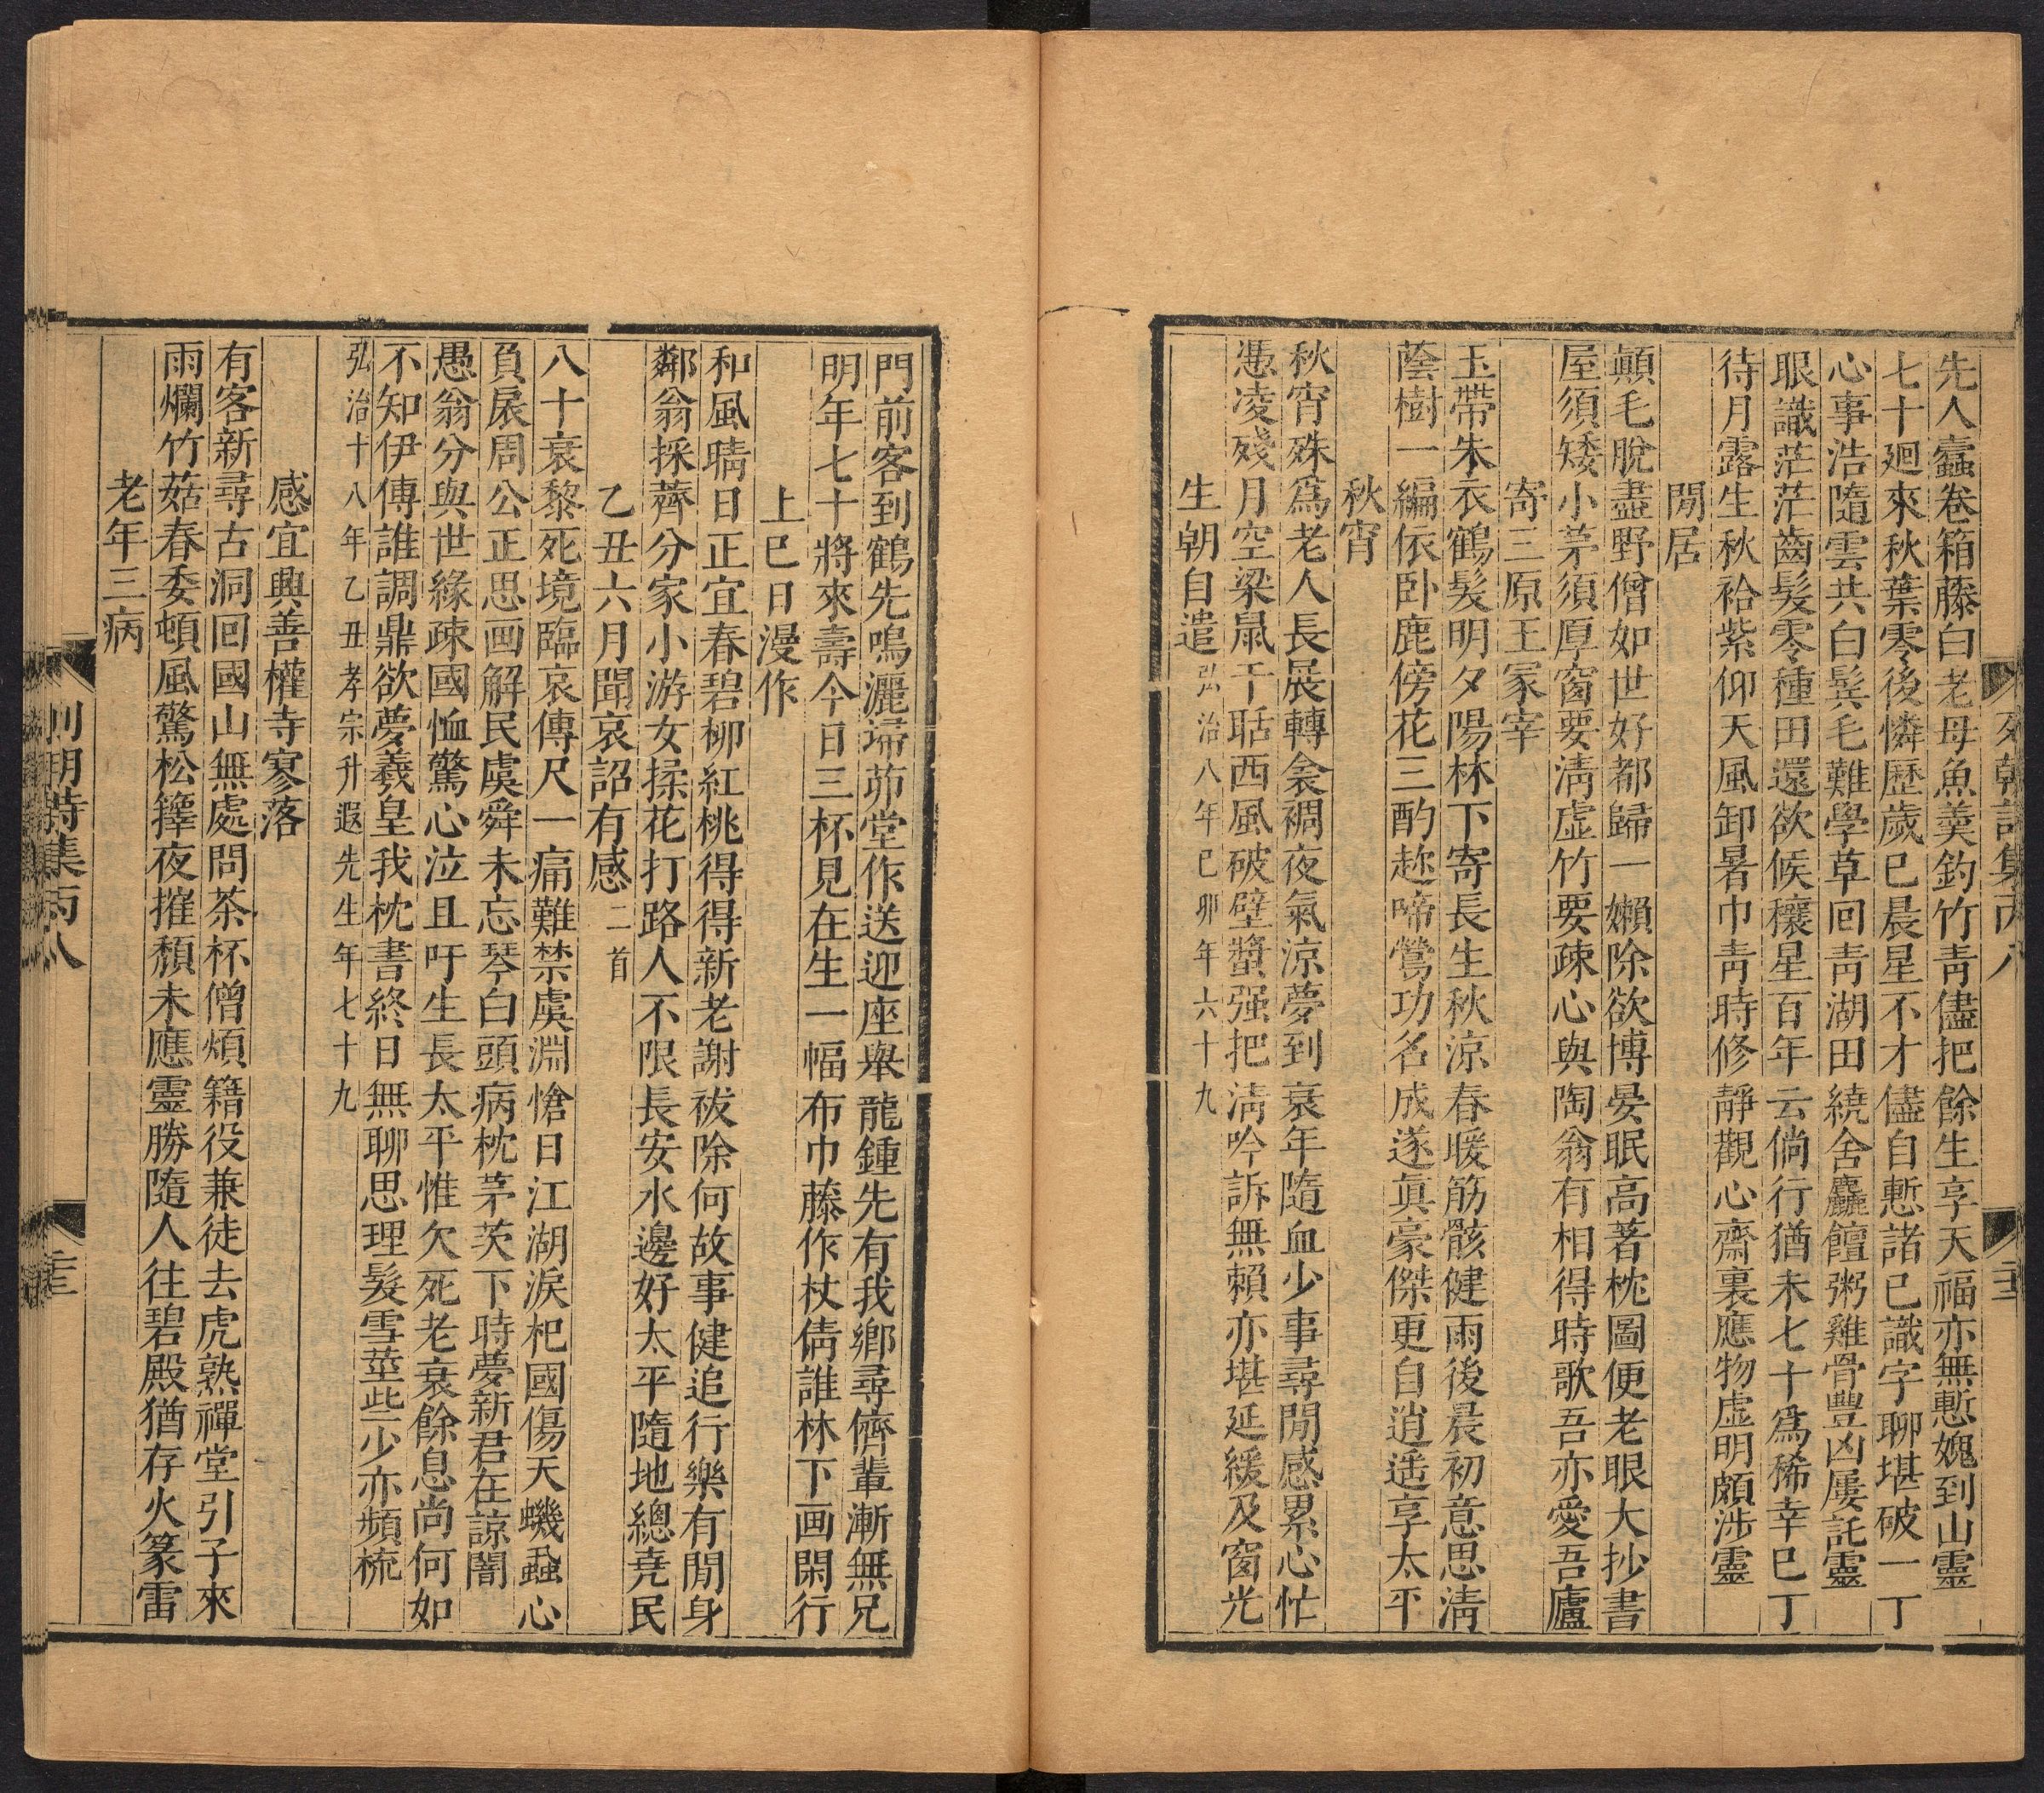 先人蠹卷箱藤白老母魚羹釣竹青儘把餘生享天福亦無慙媿到山靈
七十廻來秋葉零後憐歷歲已晨星不才儘自慙諸已識字聊堪破一丁
心事浩隨雲共白鬂毛難學草回青湖田繞舍麤饘粥雞骨豐凶屢託靈
眼識茫茫齒髮零種田還欲候穰星百年云倘行猶未七十爲稀幸巳丁
待月露生秋袷紫仰天風卸暑巾青時修靜觀心齋裏應物虛明頗涉靈
閒居
顛毛脫盡野僧如世好都歸一嬾除欲博晏眠高著枕圖便老眼大抄書
屋須矮小茅須厚窗要淸虛竹要疎心與陶翁有相得時歌吾亦愛吾廬
寄三原王冢宰
玉帶朱衣鶴髮明夕陽林下寄長生秋涼春暖筋骸健雨後晨初意思淸
蔭樹一編依卧鹿傍花三酌趂啼鶯功名成遂眞豪傑更自逍遙享太平
秋宵
秋宵殊爲老人長展轉衾裯夜氣涼夢到衰年隨血少事尋閒感累心忙
憑凌殘月空梁鼠干聒西風破壁螿强把淸吟訴無賴亦堪延緩及窗光
生朝自遣弘治八年己卯年六十九
門前客到鶴先鳴灑埽茆堂作送迎座舉龍鍾先有我鄉尋儕輩漸無兄
明年七十將來壽今日三杯見在生一幅布巾藤作杖倩誰林下画閑行
上巳日漫作
和風晴日正宜春碧柳紅桃得得新老謝祓除何故事健追行樂有閒身
鄰翁採薺分家小游女揉花打路人不限長安水邊好太平隨地總堯民
乙丑六月聞哀詔有感二首
八十衰黎死境臨哀傳尺一痛難禁虞淵愴日江湖淚杞國傷天蟣蝨心
負扆周公正思画解民虞舜未忘琴白頭病枕茅茨下時夢新君在諒闇
愚翁分與世緣疎國恤驚心泣且吁生長太平惟欠死老衰餘息尚何如
不知伊傅誰調鼎欲夢羲皇我枕書終日無聊思理髮雪莖些少亦頻梳
弘治十八年乙丑孝宗升遐先生年七十九
感宜興善權寺寥落
有客新尋古洞回國山無處問茶杯僧煩籍役兼徒去虎熟禪堂引子來
雨爛竹菇春委頓風驚松籜夜摧頹未應靈勝隨人往碧殿猶存火篆雷
老年三病